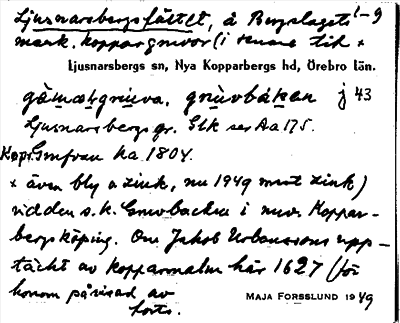 Ljusnarsbergsfältet, å Bergslagets 1-9
märk. koppargruvor (i senare tid x
Ljusnarsbergs sn, Nya Kopparbergs hd, Örebro län.
gàmałgrùuva, grùvbákan j 43
Ljusnarsbergs gr. Gtk ser Aa 175.
Kopr. Grufvan ka 1804.
x även bly o zink, nu 1949 mest zink)
vid den s.k. Gruvbacken i nuv. Koppar-
bergs köping. Om Jakob Urbanssons upp-
täckt av kopparmalm här 1627 (för
honom påvisad av
forts.
MAJA FORSSLUND 1949